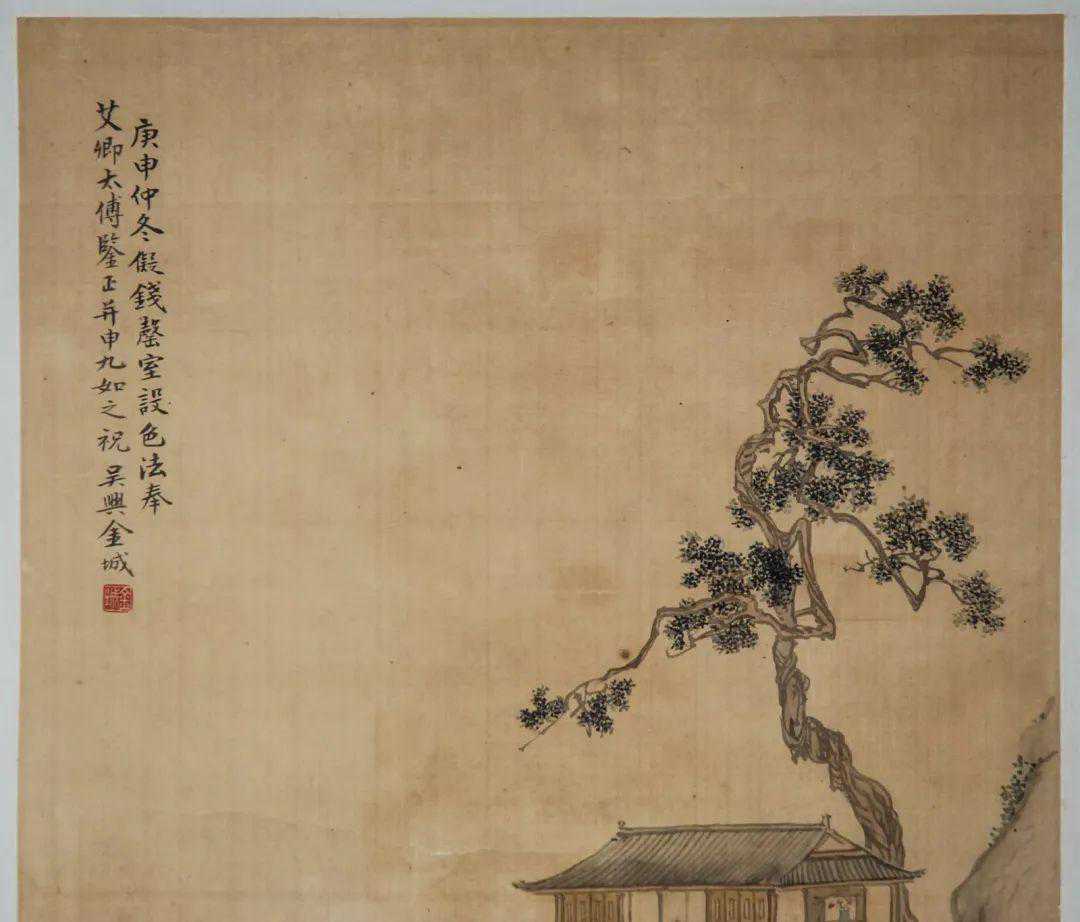 庚申仲冬假錢罄室設色法奉
艾卿太傅鍳正并申九如之祝 吴興金城